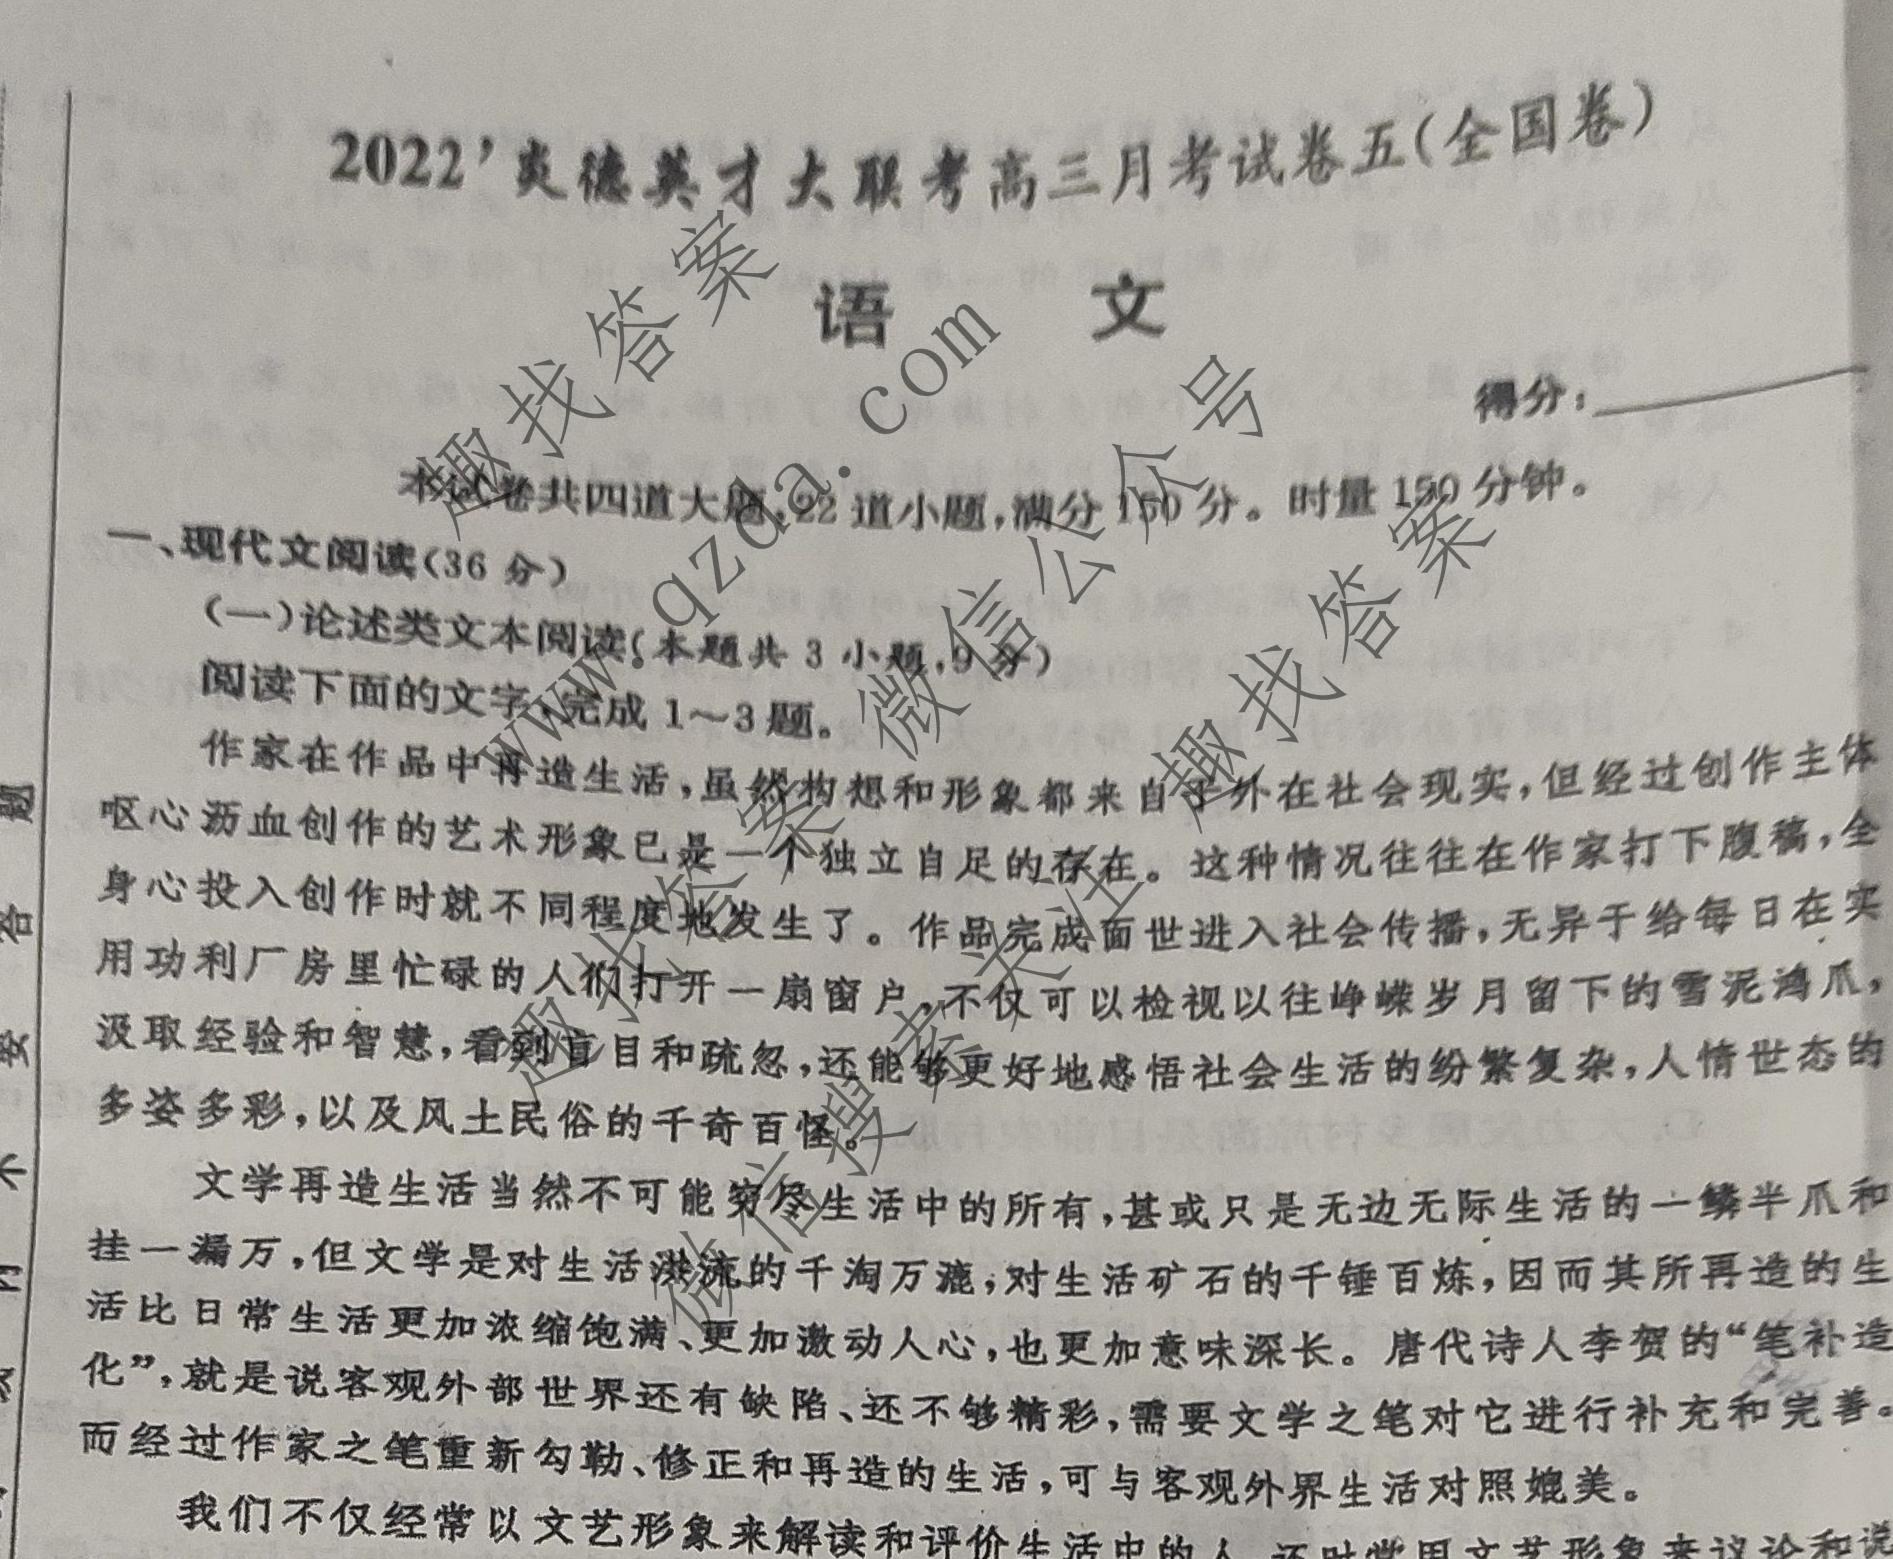 2022’炎德英才大联考高三月考试卷五(全国卷)
语 文
得分：
本试卷共四道大题，22道小题，满分150分。时量150分钟。
一、现代文阅读(36分)
(一)论述类文本阅读(本题共3小题，9分)
阅读下面的文字，完成1～3题。
作家在作品中再造生活，虽然构想和形象都来自于外在社会现实，但经过创作主体
呕心沥血创作的艺术形象已是一个独立自足的存在。这种情况往往在作家打下腹稿，全
身心投入创作时就不同程度地发生了。作品完成面世进入社会传播，无异于给每日在实
用功利厂房里忙碌的人们打开一扇窗户，不仅可以检视以往峥嵘岁月留下的雪泥鸿爪，
汲取经验和智慧，看到盲目和疏忽，还能够更好地感悟社会生活的纷繁复杂，人情世态的
多姿多彩，以及风土民俗的千奇百怪。
文学再造生活当然不可能穷尽生活中的所有，甚或只是无边无际生活的一鳞半爪和
挂一漏万，但文学是对生活洪流的千淘万漉，对生活矿石的千锤百炼，因而其所再造的生
活比日常生活更加浓缩饱满、更加激动人心，也更加意味深长。唐代诗人李贺的“笔补造
化”，就是说客观外部世界还有缺陷、还不够精彩，需要文学之笔对它进行补充和完善。
而经过作家之笔重新勾勒、修正和再造的生活，可与客观外界生活对照媲美。
我们不仅经常以文艺形象来解读和评价生活中的人，还时常用文艺形象来议论和说
题
答
要
不
内
趣找答案
www.qzda.com
趣找答案 微信公众号
微信搜索关注 趣找答案